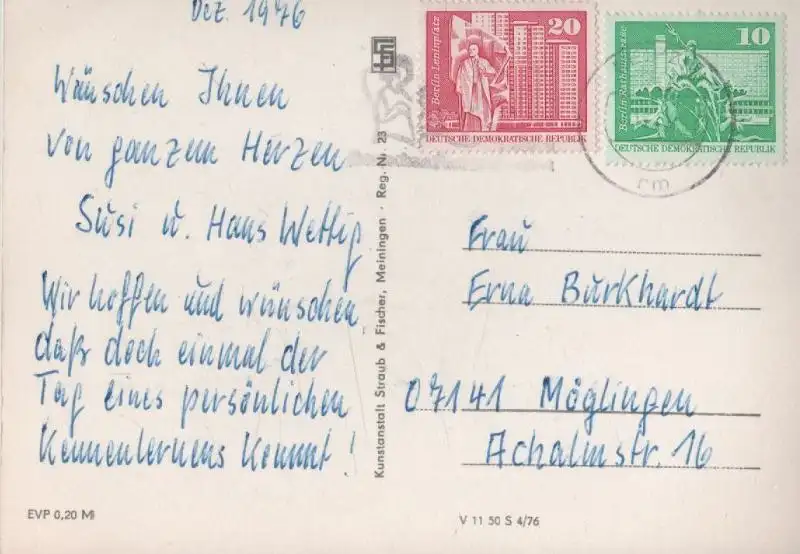 Dez. 1976
Wünschen Ihnen
von ganzem Herzen
Susi u. Hans Wettig
Wir hoffen und wünschen,
daß doch einmal der
Tag eines persönlichen
Kennenlernens kommt!
EVP 0,20 M
Kunstanstalt Straub & Fischer, Meiningen · Reg. Nr. 23
Berlin-Leninplatz
20
DEUTSCHE DEMOKRATISCHE REPUBLIK
Berlin-Rathausstraße
10
DEUTSCHE DEMOKRATISCHE REPUBLIK
rm
Frau
Erna Burkhardt
07141 Möglingen
Achalmstr. 16
V 11 50 S 4/76